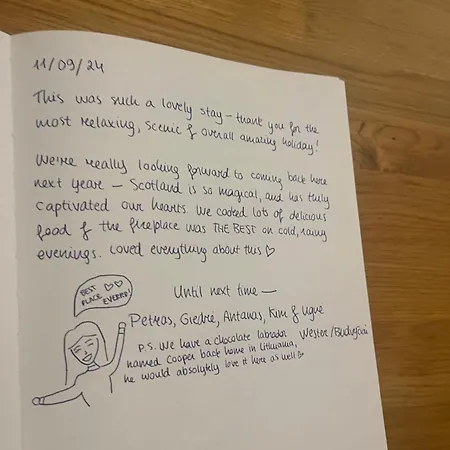 11/09/24
This was such a lovely stay – thank you for the
most relaxing, scenic & overall amazing holiday!
We're really looking forward to coming back here
next year – Scotland is so magical, and has truly
captivated our hearts. We cooked lots of delicious
food & the fireplace was THE BEST on cold, rainy
evenings. Loved everything about this ♡
BEST ♡♡
PLACE
EVERRR!
Until next time —
Petras, Giedrė, Antanas, Kim & Ugnė
P.S. We have a chocolate labrador
named Cooper back home in Lithuania,
he would absolutely love it here as well